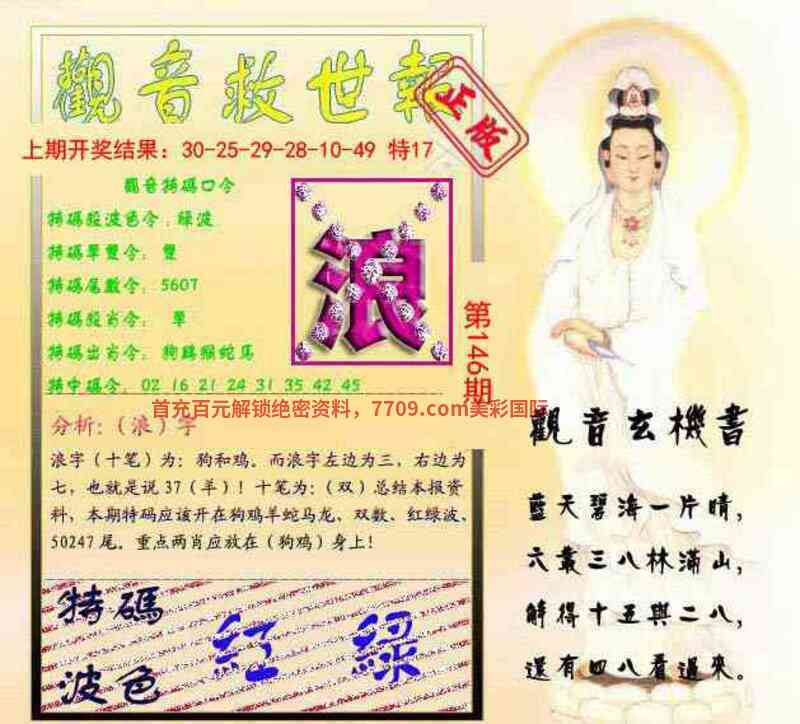 觀音救世報
正版
上期开奖结果：30-25-29-28-10-49 特17
觀音特碼口令
特碼殺波色令：綠波
特碼單雙令：雙
特碼尾數令：5607
特碼殺肖令：單
特碼出肖令：狗鷄猴蛇馬
特中碼令：02 16 21 24 31 35 42 45
浪
第146期
首充百元解锁绝密资料，7709.com美彩国际
分析：（浪）字
浪字（十笔）为：狗和鸡。而浪字左边为三，右边为
七，也就是说37（羊）！十笔为：（双）总结本报资
料，本期特码应该开在狗鸡羊蛇马龙、双数、红绿波、
50247尾。重点两肖应放在（狗鸡）身上！
特碼
波色
紅 綠
觀音玄機書
蓝天碧海一片晴，
六叢三八林滿山，
解得十五與二八，
還有四八看過來。